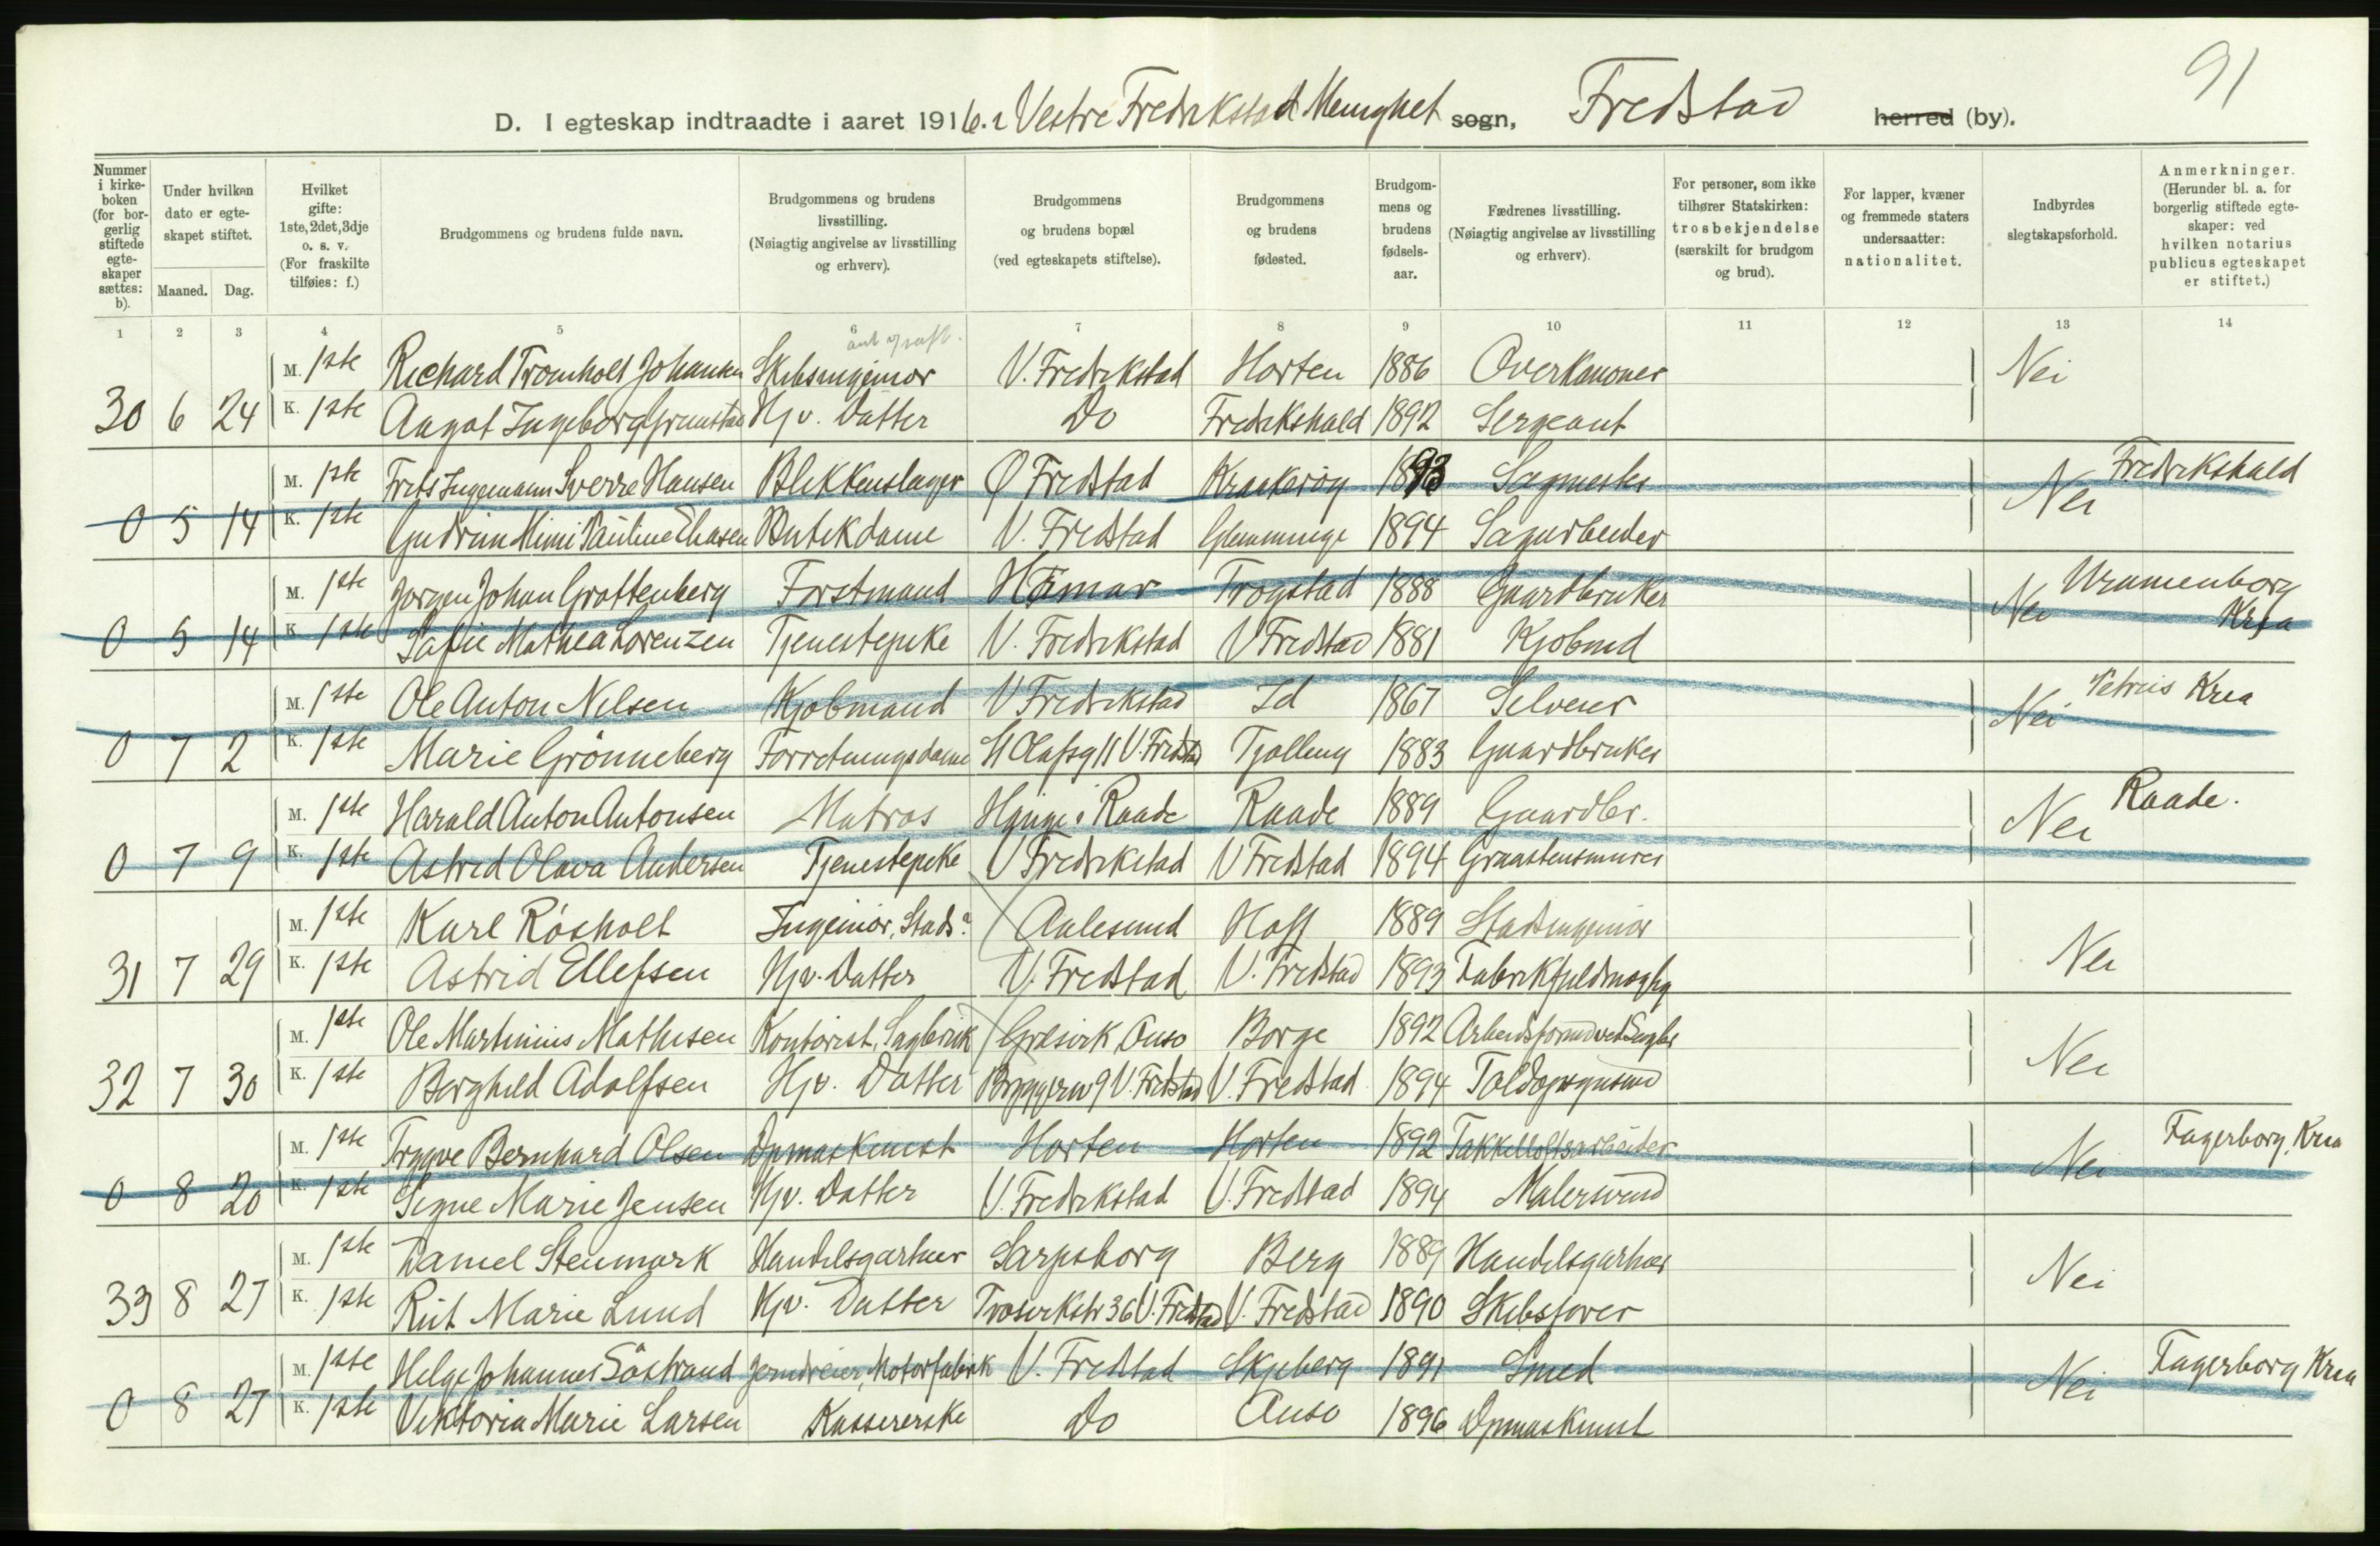 91
D. I egteskap indtraadte i aaret 1916. i Vestre Fredrikstad Menighet sogn, Fredstad herred (by).
Nummer i kirkeboken (for borgerlig stiftede egteskaper sættes: b).
Under hvilken dato er egteskapet stiftet.
Maaned. Dag.
Hvilket gifte: 1ste, 2det, 3dje o. s. v. (For fraskilte tilføies: f.)
Brudgommens og brudens fulde navn.
Brudgommens og brudens livsstilling. (Nøiagtig angivelse av livsstilling og erhverv).
Brudgommens og brudens bopæl (ved egteskapets stiftelse).
Brudgommens og brudens fødested.
Brudgommens og brudens fødselsaar.
Fædrenes livsstilling. (Nøiagtig angivelse av livsstilling og erhverv).
For personer, som ikke tilhører Statskirken: trosbekjendelse (særskilt for brudgom og brud).
For lapper, kvæner og fremmede staters undersaatter: nationalitet.
Indbyrdes slegtskapsforhold.
Anmerkninger. (Herunder bl. a. for borgerlig stiftede egteskaper: ved hvilken notarius publicus egteskapet er stiftet.)
1 2 3 4 5 6 7 8 9 10 11 12 13 14
M. 1ste Richard Tromholt Johansen Skibsingeniør V. Fredrikstad Horten 1886 Overkanoner Nei
30 6 24 K. 1ste Aagot Ingeborg Hjv. Datter Do Fredrikshald 1892 Sergeant
M. 1ste Frits Ingemann Sverre Hansen Blikkenslager Ø Fredstad Kraakerøy 1893 Sagmester Nei Fredrikshald
0 5 14 K. 1ste Gudrun Mimi Pauline Butikdame V. Fredstad Glemminge 1894 Sagarbeider
M. 1ste Jørgen Johan Grottenberg Forstmand Hamar Trøgstad 1888 Gaardbruker Nei Uranienborg Kria
0 5 14 K. 1ste Sofie Mathea Lorenzen Tjenestepike V. Fredrikstad V Fredstad 1881 Kjøbmd
M. 1ste Ole Anton Nilsen Kjøbmand V Fredrikstad Id 1867 Selveier Nei Petrus Kria
0 7 2 K. 1ste Marie Grønneberg Forretningsdame St Olafsg 11 V. Fredstad Tjølling 1883 Gaardbruker
M. 1ste Harald Anton Antonsen Matros i Raade Raade 1889 Gaardbr. Nei Raade.
0 7 9 K. 1ste Astrid Olava Andersen Tjenestepike V Fredrikstad V Fredstad 1894 Graastensmurer
M. 1ste Karl Røsholt Ingeniør, Stads. Aalesund Hoff 1889 Stadsingeniør
31 7 29 K. 1ste Astrid Ellefsen Hjv. Datter V. Fredstad V. Fredstad 1893 Fabrikfuldmægtig Nei
M. 1ste Ole Martinius Mathisen Kontorist, Sagbruk Græsvik Onsø Borge 1892 Arbeidsformd ved Sagbr Nei
32 7 30 K. 1ste Borghild Adolfsen Hjv. Datter V. Fredstad V. Fredstad 1894 Toldopsynsmd
M. 1ste Trygve Bernhard Olsen Dpmaskinist Horten Horten 1892 Takkelloftsarbeider Nei Fagerborg, Kria
0 8 20 K. 1ste Signe Marie Jensen Hjv. Datter V. Fredrikstad V. Fredstad 1894 Malersvend
M. 1ste Daniel Stenmark Handelsgartner Sarpsborg Berg 1889 Handelsgartner Nei
33 8 27 K. 1ste Rut Marie Lund Hjv. Datter Trosvikstr 36 V. Fredstad V. Fredstad 1890 Skibsfører
M. 1ste Helge Johannes Söstrand Jerndreier, Motorfabrik V. Fredstad Skjeberg 1891 Smed Nei Fagerborg Kria
0 8 27 K. 1ste Viktoria Marie Larsen Kassererske Do Onsø 1896 Dpmaskinist